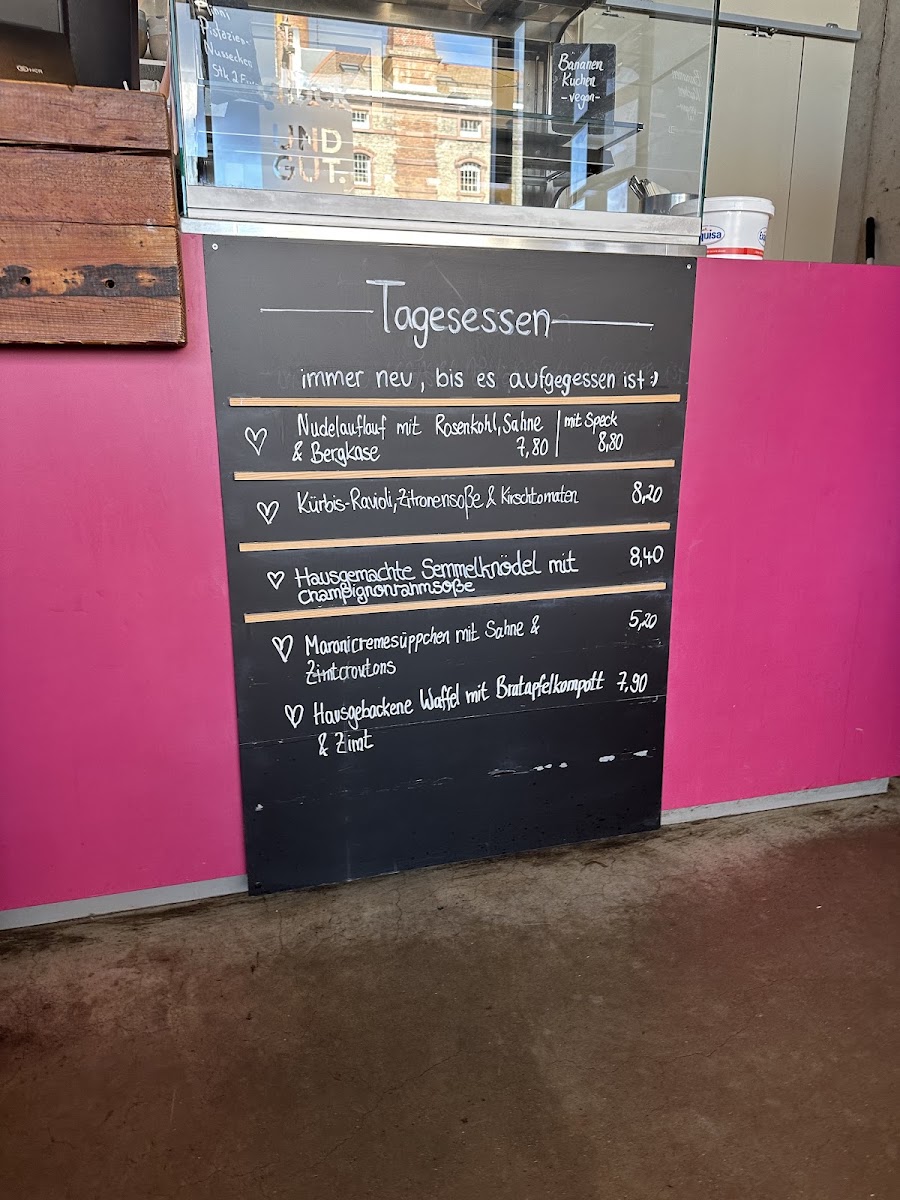 Pistazien-
Nussecken
Stk. 2
Bananen
Kuchen
- vegan -
UND
GUT.
quisa
Tagesessen
immer neu, bis es aufgegessen ist :)
Nudelauflauf mit Rosenkohl, Sahne | mit Speck
& Bergkäse 7,80 | 8,80
Kürbis-Ravioli, Zitronensoße & Kirschtomaten 8,20
Hausgemachte Semmelknödel mit 8,40
champignonrahmsoße
Maronicremesüppchen mit Sahne & 5,20
Zimtcroutons
Hausgebackene Waffel mit Bratapfelkompott 7,90
& Zimt